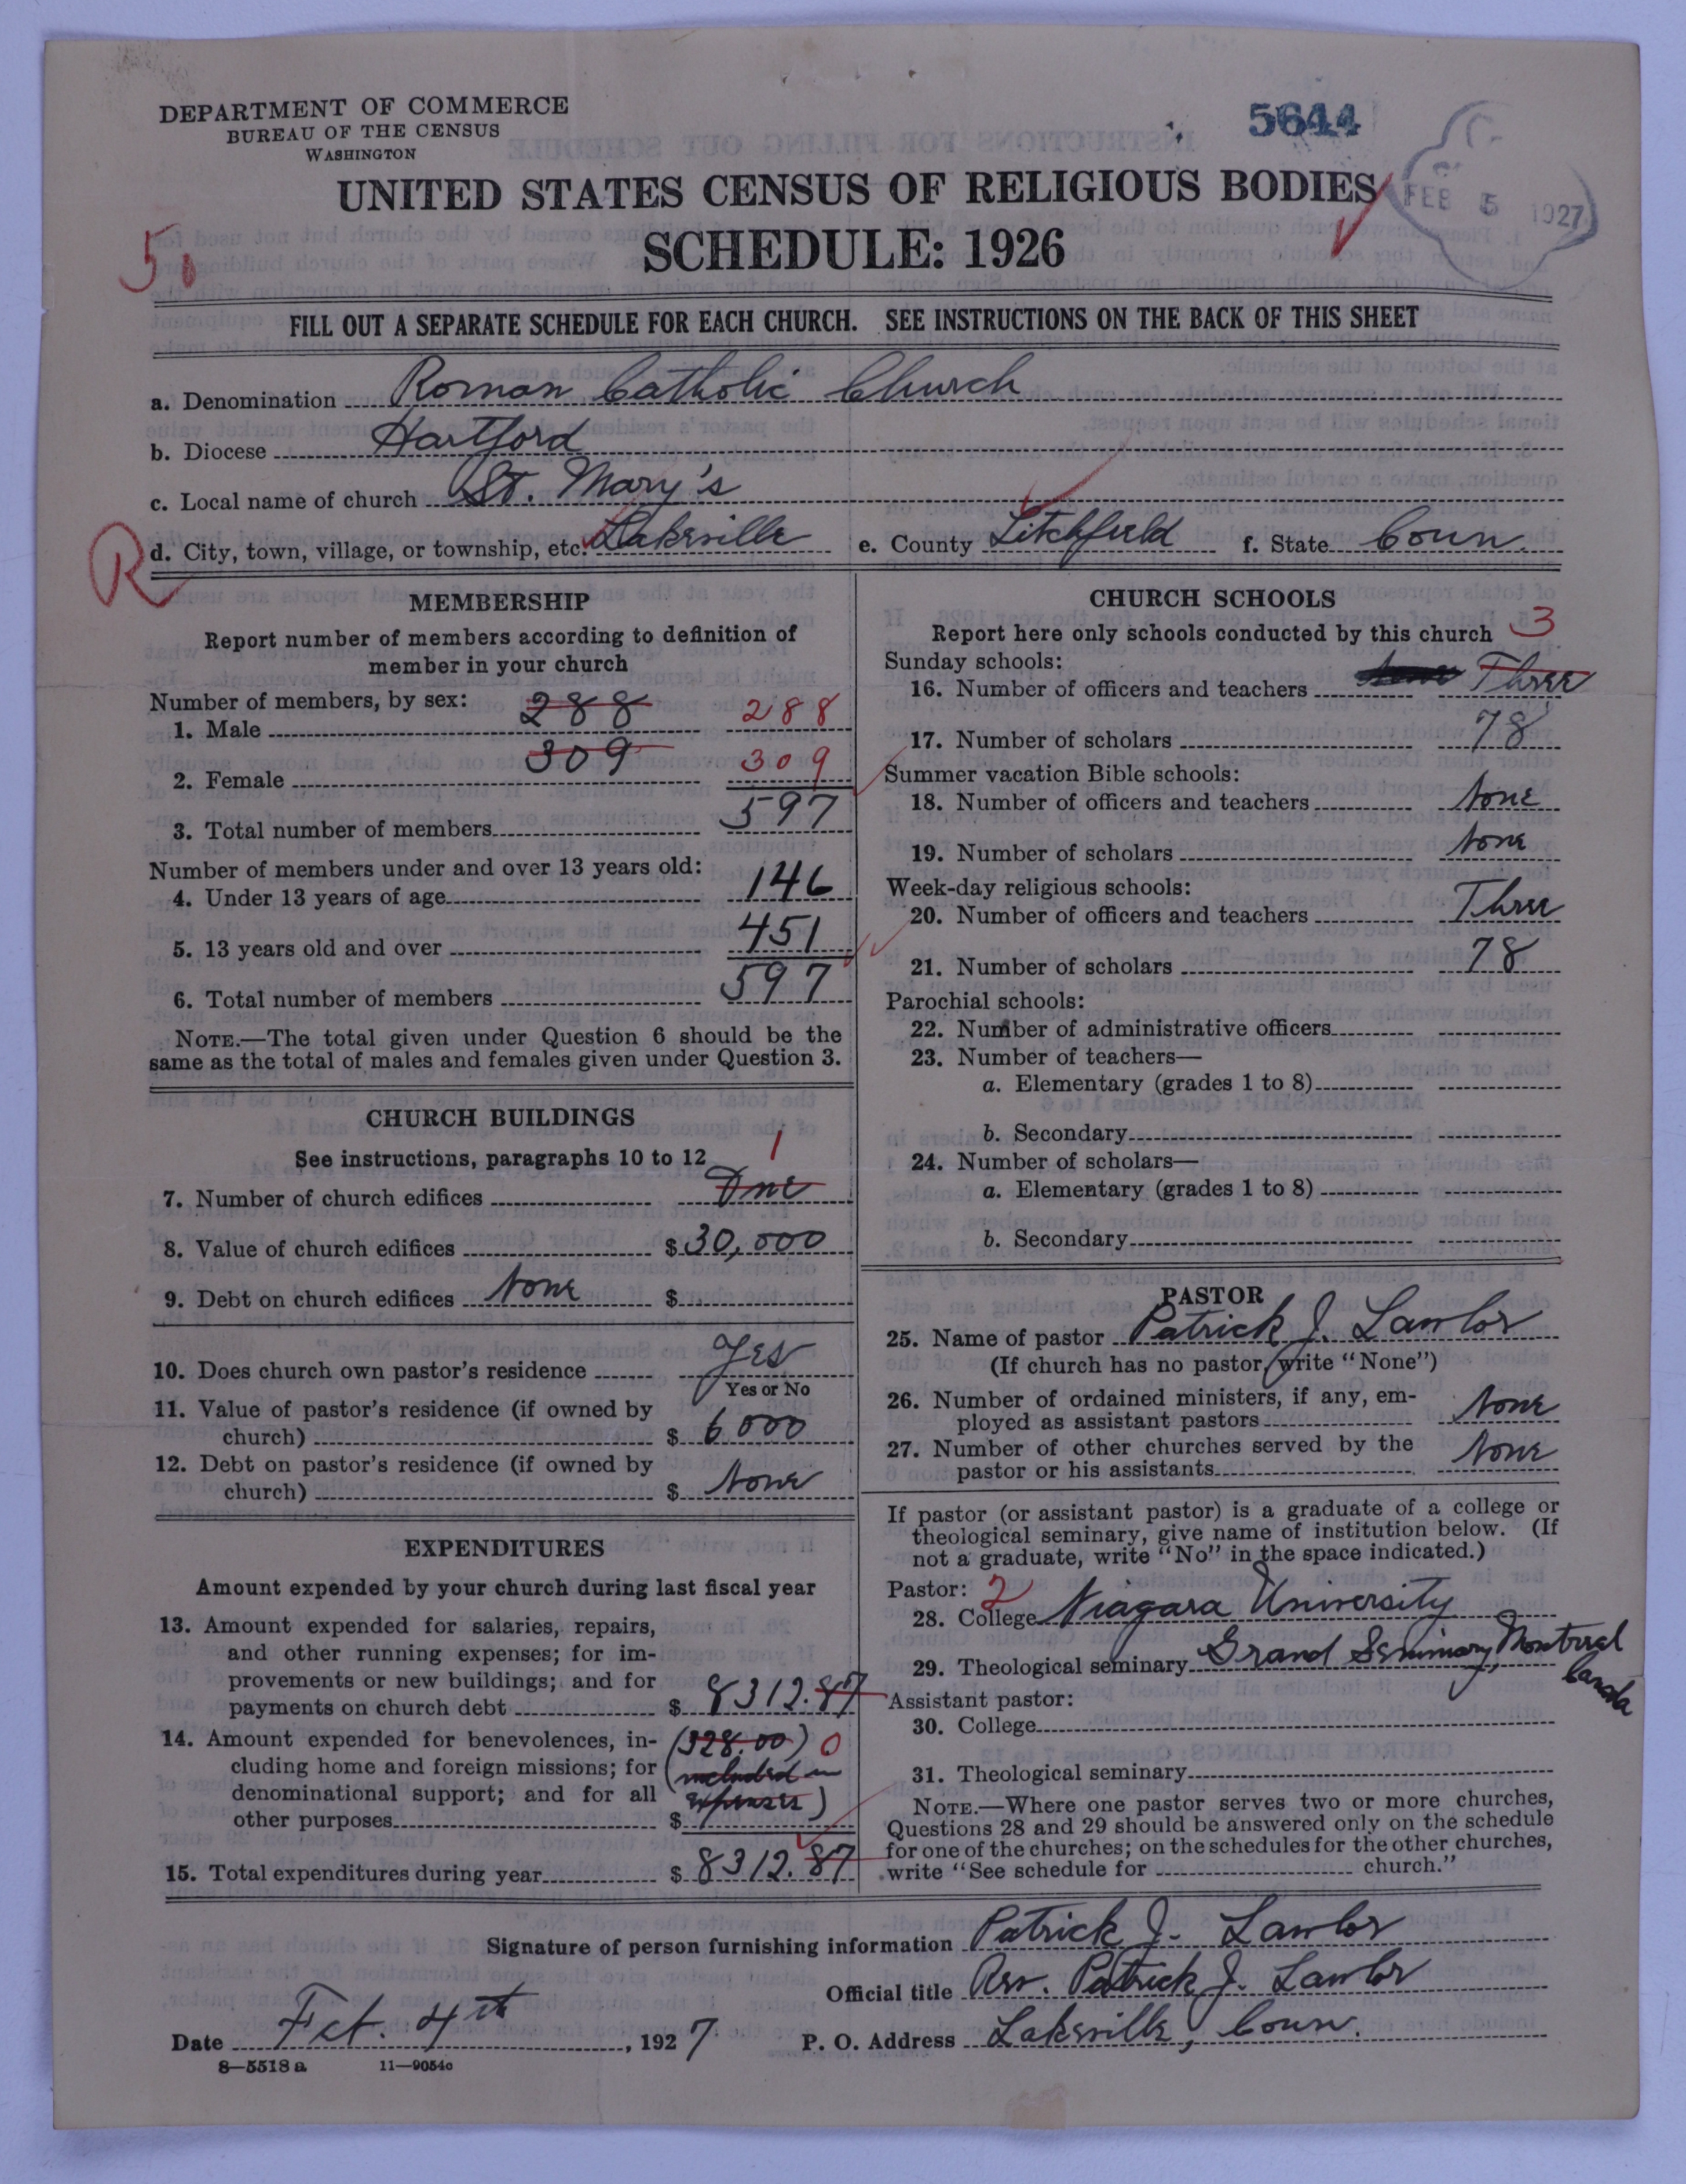 DEPARTMENT OF COMMERCE
BUREAU OF THE CENSUS
WASHINGTON
5644
UNITED STATES CENSUS OF RELIGIOUS BODIES
FEB 5 1927
SCHEDULE: 1926
5.
FILL OUT A SEPARATE SCHEDULE FOR EACH CHURCH. SEE INSTRUCTIONS ON THE BACK OF THIS SHEET
a. Denomination Roman Catholic Church
b. Diocese Hartford
c. Local name of church St. Mary's
R
d. City, town, village, or township, etc. Lakeville e. County Litchfield f. State Conn.
MEMBERSHIP
Report number of members according to definition of
member in your church
Number of members, by sex:
1. Male 288 288
2. Female 309 309
3. Total number of members 597
Number of members under and over 13 years old:
4. Under 13 years of age 146
5. 13 years old and over 451
6. Total number of members 597
NOTE.—The total given under Question 6 should be the
same as the total of males and females given under Question 3.
CHURCH BUILDINGS
See instructions, paragraphs 10 to 12
1
7. Number of church edifices One
8. Value of church edifices $30,000
9. Debt on church edifices None $
10. Does church own pastor's residence Yes
Yes or No
11. Value of pastor's residence (if owned by
church) $ 6000
12. Debt on pastor's residence (if owned by
church) $ None
EXPENDITURES
Amount expended by your church during last fiscal year
13. Amount expended for salaries, repairs,
and other running expenses; for im-
provements or new buildings; and for
payments on church debt $ 8312.87
14. Amount expended for benevolences, in- (328.00) 0
cluding home and foreign missions; for (included in
denominational support; and for all expenses)
other purposes $
15. Total expenditures during year $ 8312.87
CHURCH SCHOOLS
Report here only schools conducted by this church 3
Sunday schools:
16. Number of officers and teachers Three
17. Number of scholars 78
Summer vacation Bible schools:
18. Number of officers and teachers None
19. Number of scholars None
Week-day religious schools:
20. Number of officers and teachers Three
21. Number of scholars 78
Parochial schools:
22. Number of administrative officers
23. Number of teachers—
a. Elementary (grades 1 to 8)
b. Secondary
24. Number of scholars—
a. Elementary (grades 1 to 8)
b. Secondary
PASTOR
25. Name of pastor Patrick J. Lawlor
(If church has no pastor, write "None")
26. Number of ordained ministers, if any, em-
ployed as assistant pastors None
27. Number of other churches served by the
pastor or his assistants None
If pastor (or assistant pastor) is a graduate of a college or
theological seminary, give name of institution below. (If
not a graduate, write "No" in the space indicated.)
Pastor: 2
28. College Niagara University
29. Theological seminary Grand Seminary, Montreal
Canada
Assistant pastor:
30. College
31. Theological seminary
NOTE.—Where one pastor serves two or more churches,
Questions 28 and 29 should be answered only on the schedule
for one of the churches; on the schedules for the other churches,
write "See schedule for church."
Signature of person furnishing information Patrick J. Lawlor
Official title Rev. Patrick J. Lawlor
Date Feb. 4th, 1927 P. O. Address Lakeville, Conn.
8—5518 a 11—9054c